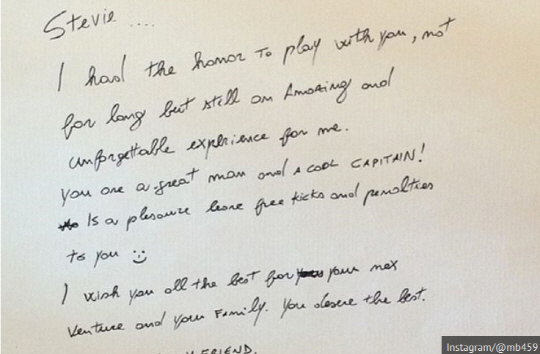 Stevie ....
I had the honor to play with you, not
for long but still an Amazing and
unforgettable experience for me.
you are a great man and a cool CAPITAIN!
Is a pleasure leave free kicks and penalties
to you :)
I wish you all the best for your nex
Venture and your Family. You deserve the best.
FRIEND.
Instagram/@mb459